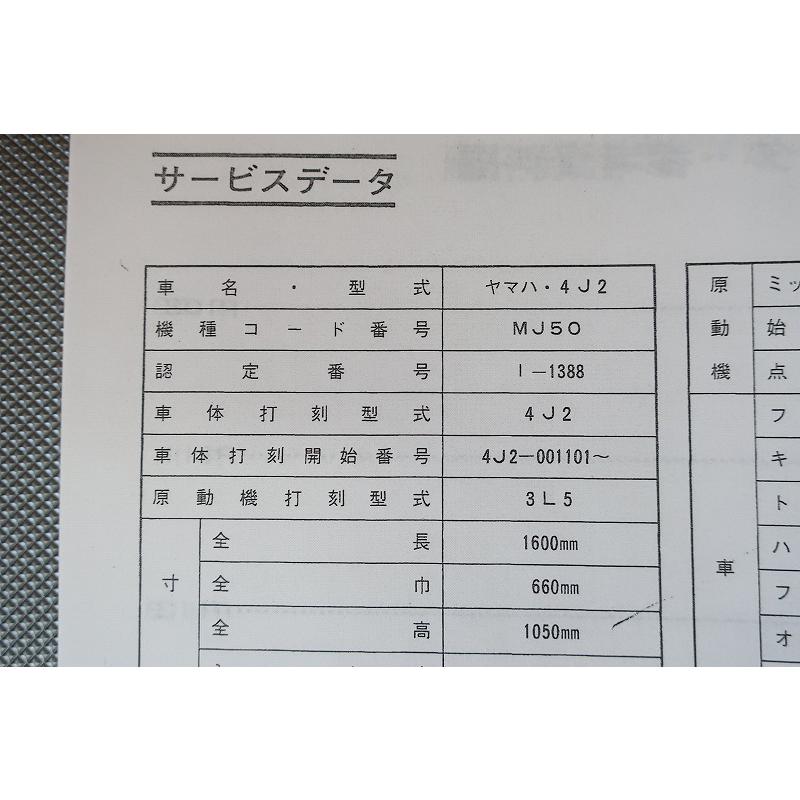 サービスデータ
車名・型式 ヤマハ・4J2
機種コード番号 MJ50
認定番号 I-1388
車体打刻型式 4J2
車体打刻開始番号 4J2-001101～
原動機打刻型式 3L5
寸
全長 1600mm
全巾 660mm
全高 1050mm
原動機
ミッ
始
点
車
フ
キ
ト
ハ
フ
オ